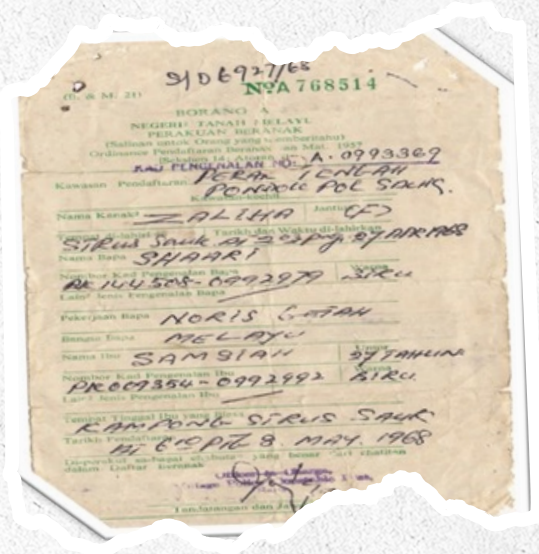 S/D 6927/68
(B. & M. 21)
No A 768514
BORANG A
NEGERI TANAH MELAYU
PERAKUAN BERANAK
(Salinan untok Orang yang memberitahu)
Ordinance Pendaftaran Beranak dan Mati, 1957
KAD PENGENALAN NO: A. 0993369
Kawasan Pendaftaran PERAK TENGAH
PONDOK POL SAUK.
Nama Kanak2 ZALIHA Jantina (F)
Tarikh dan Waktu di-lahirkan
SIRUS SAUK 27 APR 1968
Nama Bapa SHAARI
Nombor Kad Pengenalan Bapa Warna
PK 144508-0992979 BIRU
Lain2 Jenis Pengenalan Bapa
Pekerjaan Bapa NORIS GETAH
Bangsa Bapa MELAYU
Nama Ibu SAMSIAH Umor 27 TAHUN
Nombor Kad Pengenalan Ibu Warna
PK009354-0992992 BIRU
Lain2 Jenis Pengenalan Ibu
Tempat Tinggal Ibu yang Biasa
KAMPONG SIRUS SAUK
Tarikh Pendaftaran
8. MAY. 1968
yang benar dari chatitan
dalam Daftar Beranak
Tandatangan dan